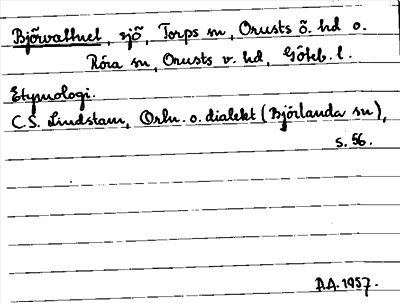 Björvattnet, sjö, Torps sn, Orusts ö. hd o.
Röra sn, Orusts v. hd, Göteb. l.
Etymologi.
C.S. Lindstam, Ortn. o. dialekt (Björlanda sn),
s. 56.
A.A. 1957.